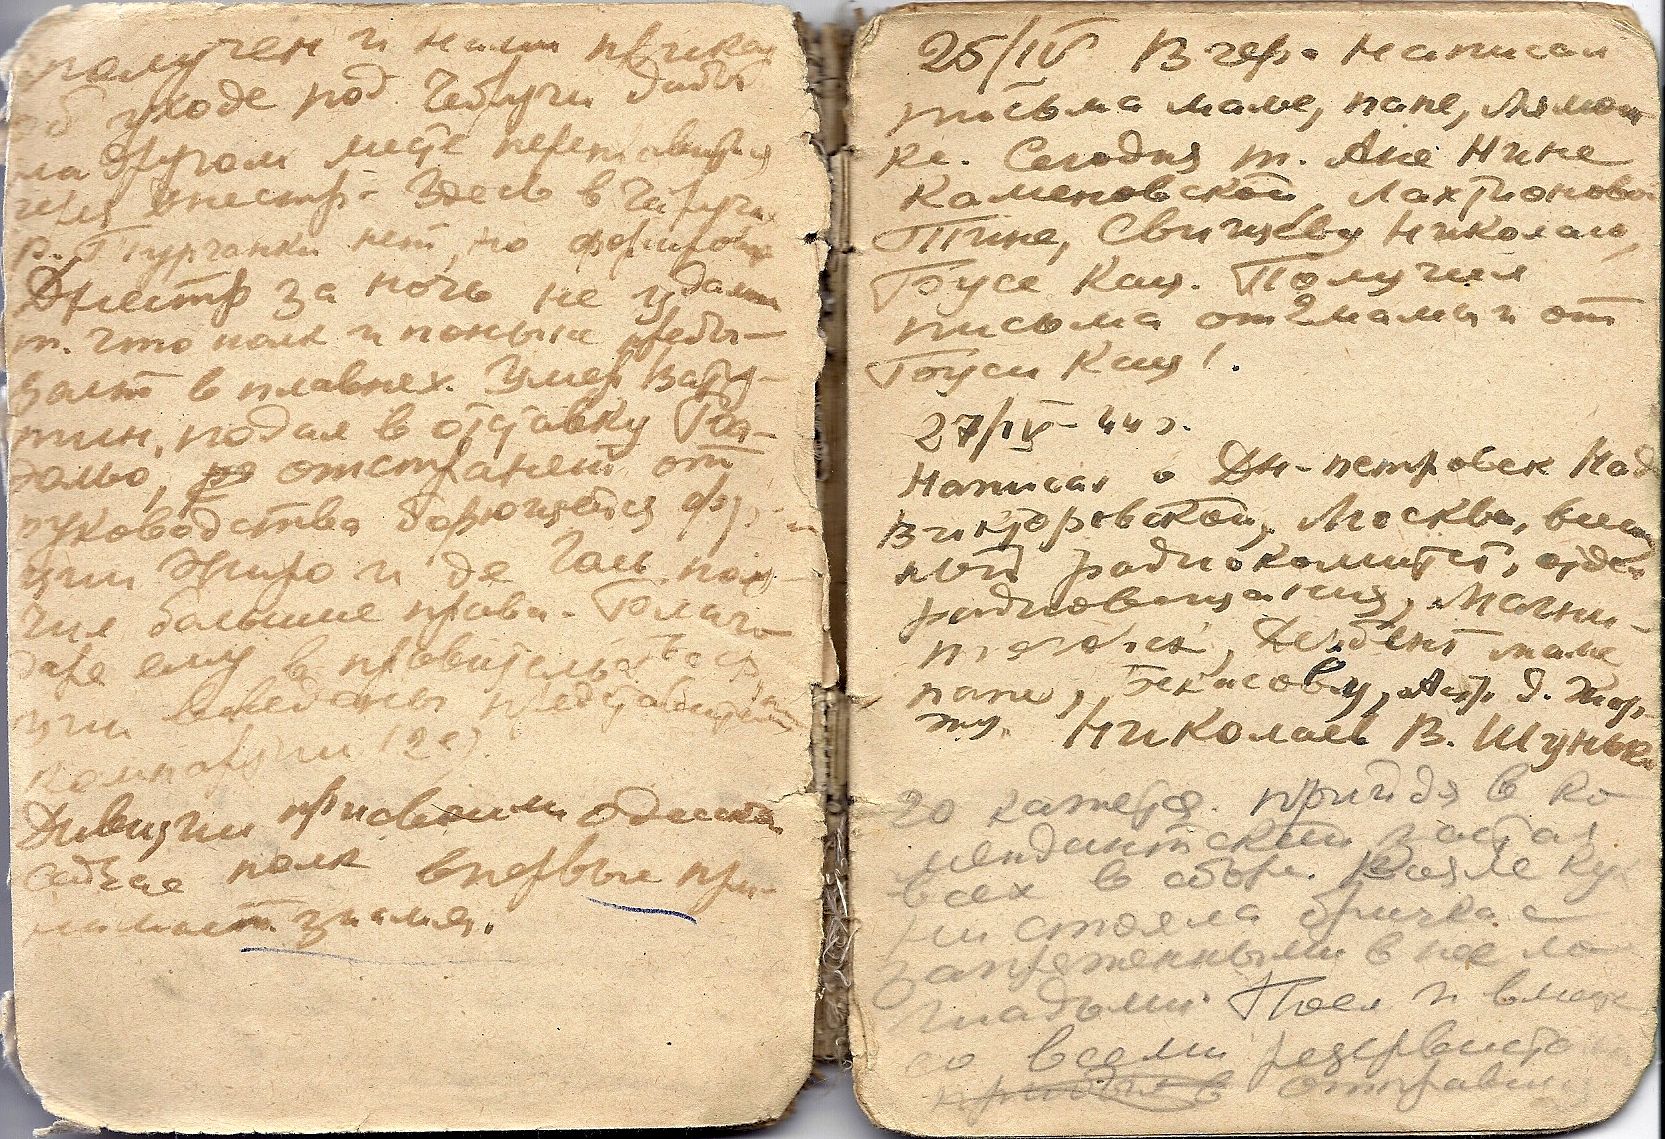 получен и нами приказ
об уходе под Чебручи дабы
на другом месте переправиться
через Днестр. Здесь в Чебручах
р. Турчанки нет, но форсировать
Днестр за ночь не удалось
т. что полк и поныне пребы-
вает в плавнях. Умер Вату-
тин, подал в отставку Бо-
дольо, отстранен от
руководства борющейся Фран-
ции Жиро и де Голь полу-
чил большие права. Благо-
даря ему в правительство Фран-
ции введены представители
компартии (2е)
Дивизии присвоили одесская
сейчас полк впервые при-
нимает знамя.
25/IV Вчера написал
письма маме, папе, Лямон
ке. Сегодня т. Ане Нине
Каменовской, Лахтионовой
Тине, Свищёву Николаю,
Бусе Кац. Получил
письма от 2 мамы и от
Буси Кац!
27/IV-44 г.
Написал в Дн-петровск Над
Викторовской, Москва, всесо
ный радиокомитет, отдел
радиовещания, Магни-
тогорск, Дешбент маме
папе, Бекасову, Аштр. д. Жор-
жу. Николаев В. Шунька
20 кажется. придя в ко-
мендантский застал
всех в сборе. Возле кух
ни стояла бричка с
запряженными в нее ло
шадьми. Поел и вместе
со всеми резервистами
придя в отправился